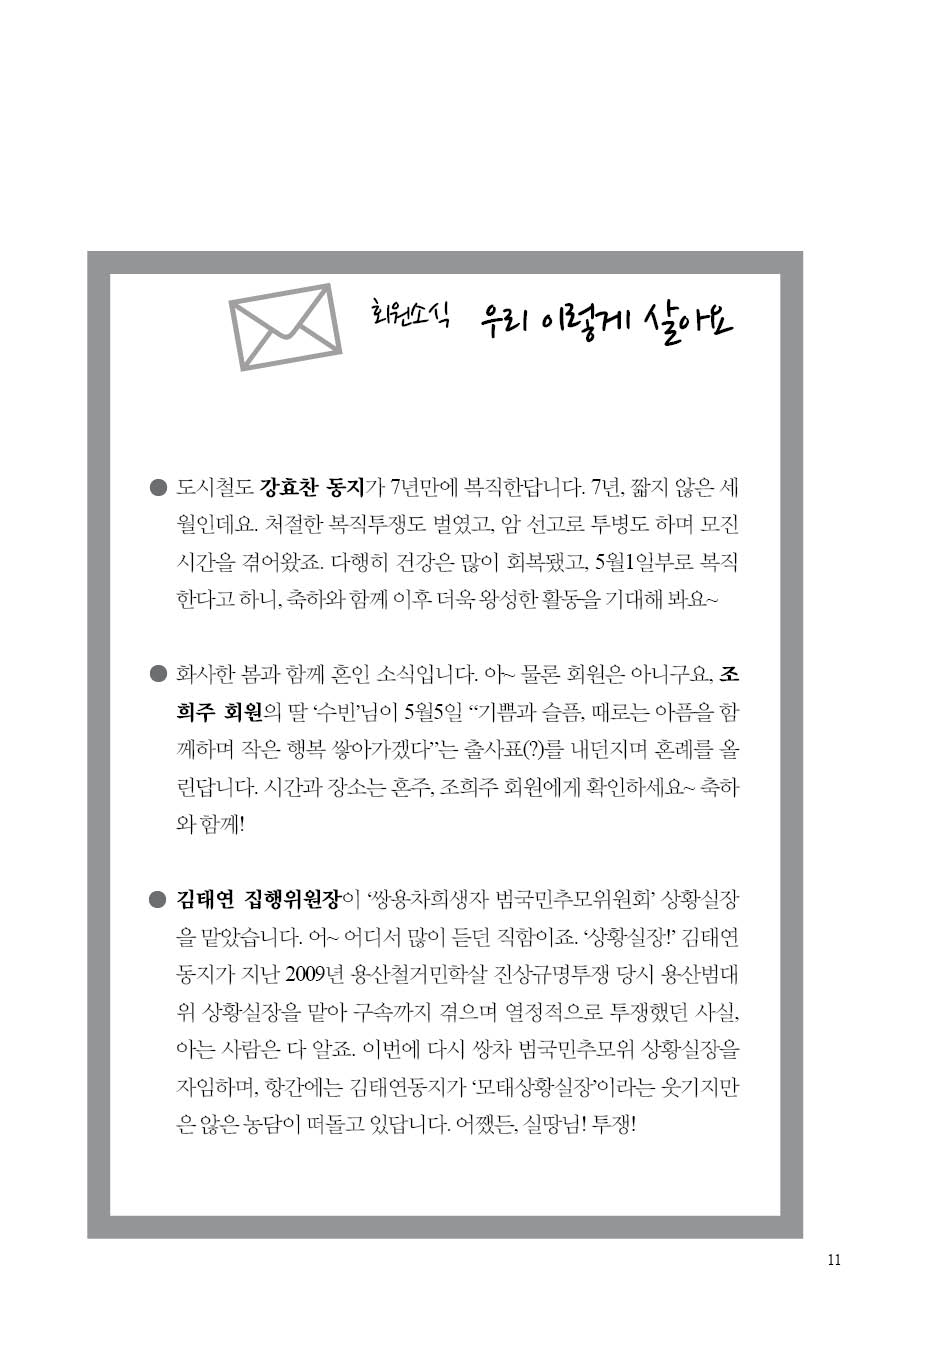 회원소식 우리 이렇게 살아요
● 도시철도 강효찬 동지가 7년만에 복직한답니다. 7년, 짧지 않은 세
월인데요. 처절한 복직투쟁도 벌였고, 암 선고로 투병도 하며 모진
시간을 겪어왔죠. 다행히 건강은 많이 회복됐고, 5월1일부로 복직
한다고 하니, 축하와 함께 이후 더욱 왕성한 활동을 기대해 봐요~
● 화사한 봄과 함께 혼인 소식입니다. 아~ 물론 회원은 아니구요, 조
희주 회원의 딸 ‘수빈’님이 5월5일 “기쁨과 슬픔, 때로는 아픔을 함
께하며 작은 행복 쌓아가겠다”는 출사표(?)를 내던지며 혼례를 올
린답니다. 시간과 장소는 혼주, 조희주 회원에게 확인하세요~ 축하
와 함께!
● 김태연 집행위원장이 ‘쌍용차희생자 범국민추모위원회’ 상황실장
을 맡았습니다. 어~ 어디서 많이 듣던 직함이죠. ‘상황실장!’ 김태연
동지가 지난 2009년 용산철거민학살 진상규명투쟁 당시 용산범대
위 상황실장을 맡아 구속까지 겪으며 열정적으로 투쟁했던 사실,
아는 사람은 다 알죠. 이번에 다시 쌍차 범국민추모위 상황실장을
자임하며, 항간에는 김태연동지가 ‘모태상황실장’이라는 웃기지만
은 않은 농담이 떠돌고 있답니다. 어쨌든, 실땅님! 투쟁!
11